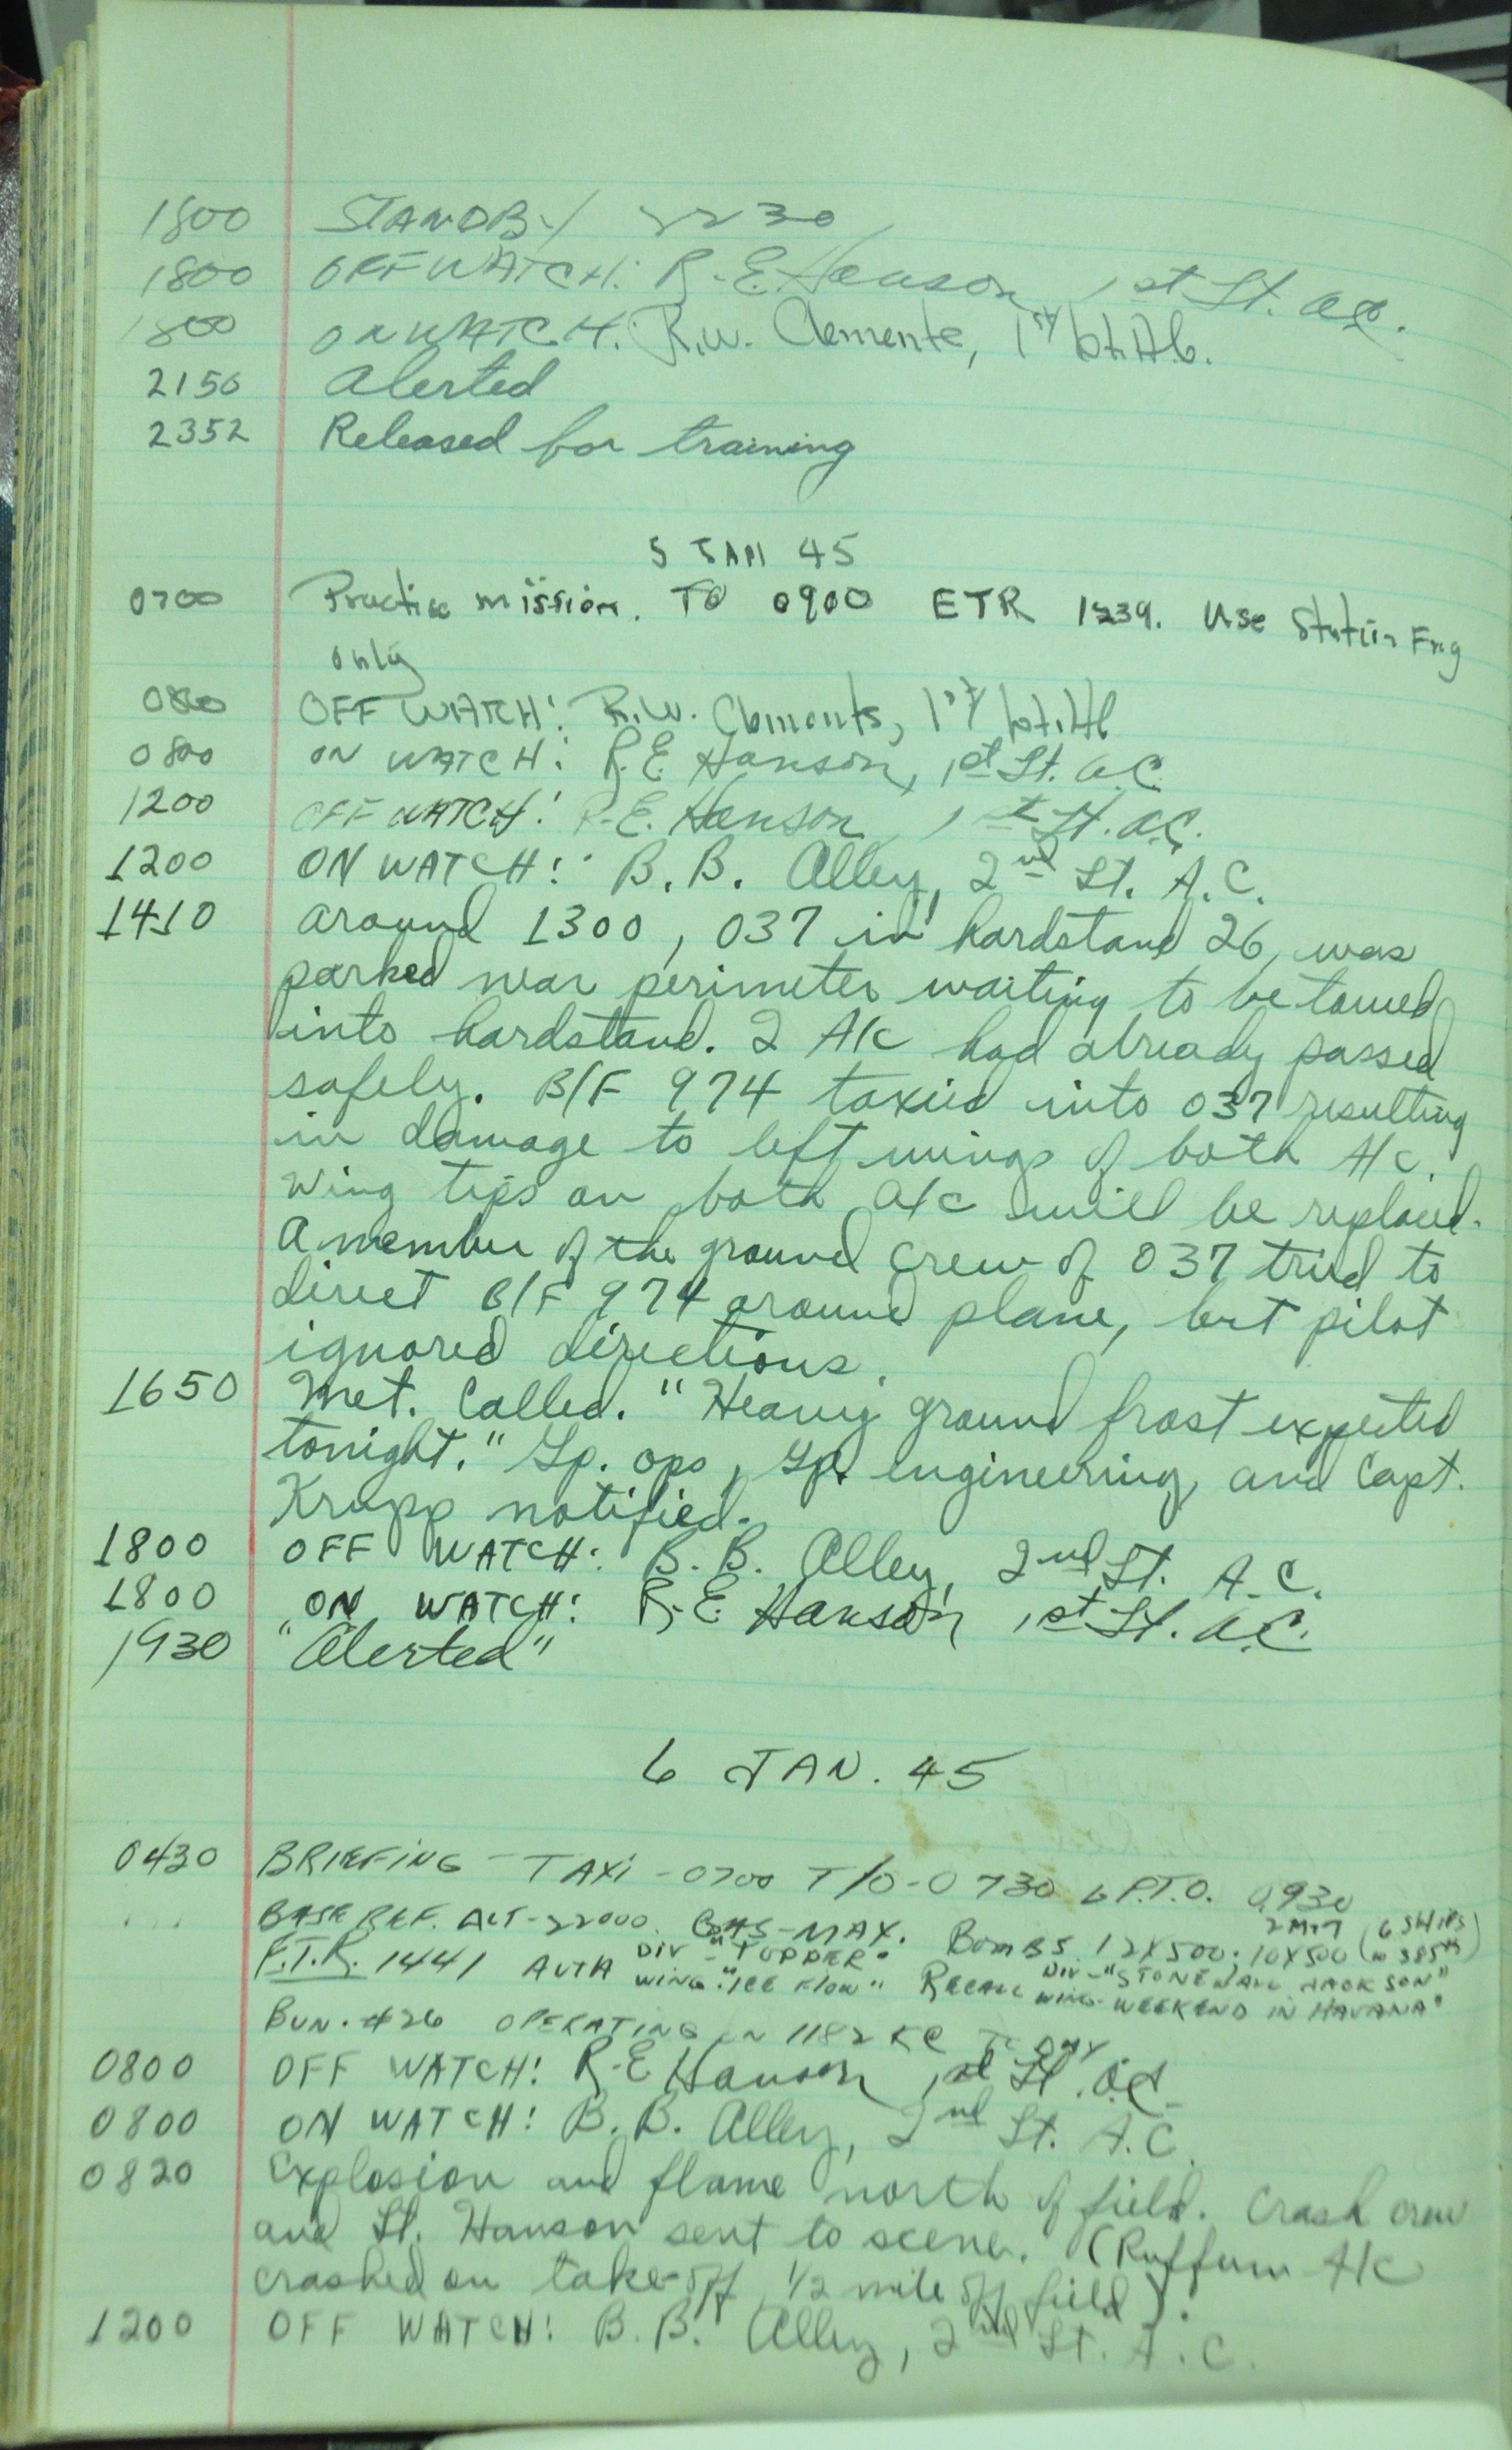 1800 STANDBY 2230
1800 OFF WATCH: R.E. Hanson, 1st Lt. AC.
1800 ON WATCH: R.W. Clements, 1st Lt. AC.
2150 Alerted
2352 Released for training
5 JAN 45
0700 Practice mission. TO 0900 ETR 1239. Use Station Eng
only
0800 OFF WATCH: R.W. Clements, 1st Lt. AC
0800 ON WATCH: R.E. Hanson, 1st Lt. A.C.
1200 OFF WATCH: R.E. Hanson, 1st Lt. A.C.
1200 ON WATCH: B.B. Alley, 2nd Lt. A.C.
1410 Around 1300, 037 in hardstand 26, was
parked near perimeter waiting to be towed
into hardstand. 2 A/c had already passed
safely. B/F 974 taxied into 037 resulting
in damage to left wings of both A/c.
Wing tips on both a/c will be replaced.
A member of the ground crew of 037 tried to
direct B/F 974 around plane, but pilot
ignored directions.
1650 Met. Called. "Heavy ground frost expected
tonight." Gp. ops, Gp. engineering, and Capt.
Krupp notified.
1800 OFF WATCH: B.B. Alley, 2nd Lt. A.C.
1800 ON WATCH: R.E. Hanson, 1st Lt. A.C.
1930 "Alerted"
6 JAN. 45
0430 BRIEFING - TAXI - 0700 T/O - 0730 L.P.T.O. 0930
BASE REF. ALT - 22000. GAS - MAX. BOMBS 12X500; 10X500 2 M17 (6 SHIPS W 385th)
E.T.R. 1441 AUTH DIV - "TOPPER" WING - "ICE FLOW" RECALL DIV - "STONEWALL JACKSON" WING - "WEEKEND IN HAVANA"
BUN. #26 OPERATING ON 1182 KC TODAY
0800 OFF WATCH: R.E. Hanson, 1st Lt. A.C.
0800 ON WATCH: B.B. Alley, 2nd Lt. A.C.
0820 Explosion and flame north of field. Crash crew
and Lt. Hanson sent to scene. (Ruffum A/c
crashed on take-off, 1/2 mile off field).
1200 OFF WATCH: B.B. Alley, 2nd Lt. A.C.